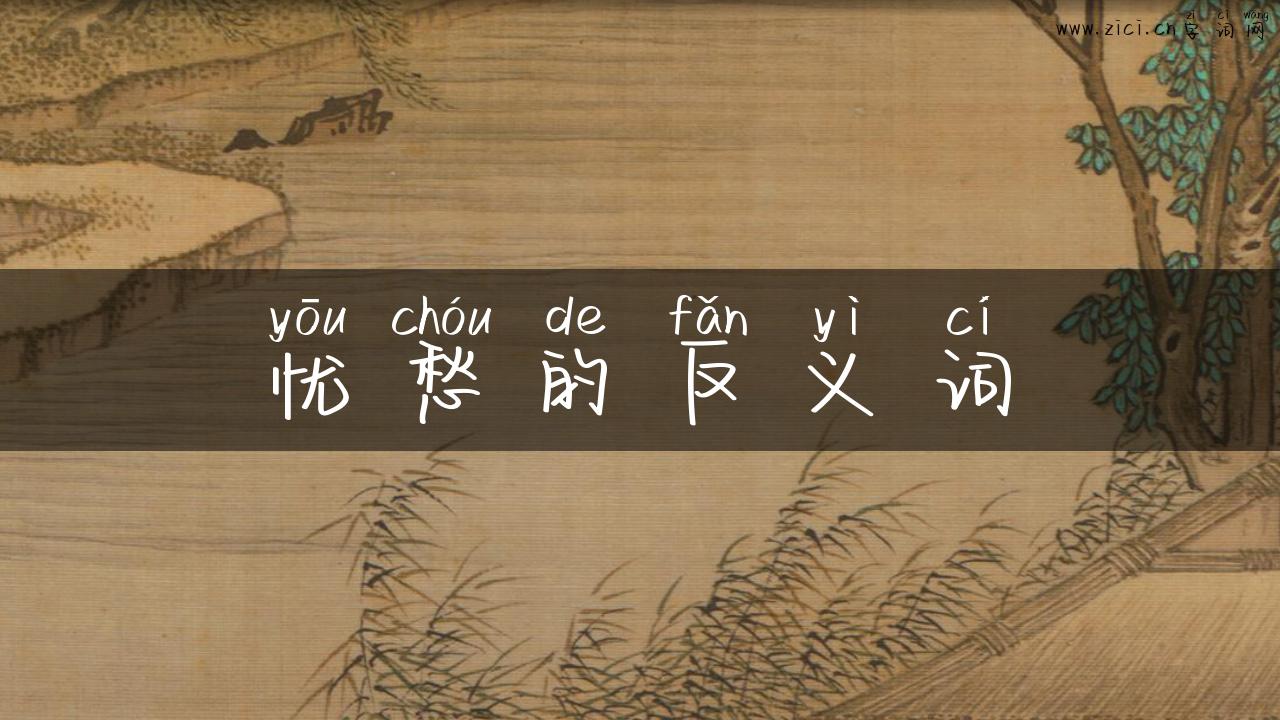 zì cí wǎng
www.zici.cn字词网
yōu chóu de fǎn yì cí
忧愁的反义词